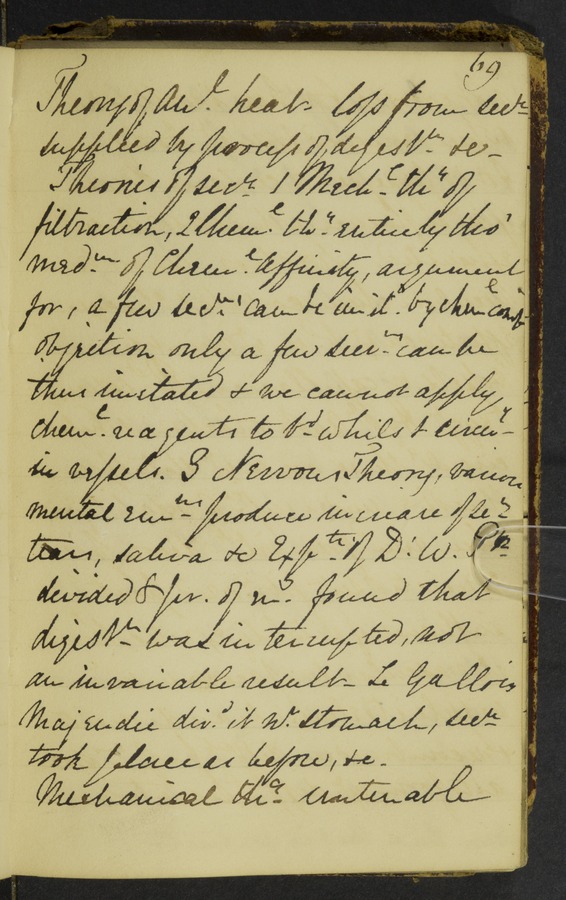 69
Theory of an.l heat loss from secn
supplied by process of digestn &c
Theories of secn 1 Mech.l thy of
filtraction, 2 Chem.l thy entirely thro'
medm of Chem.l affinity, argument
for, a few secns can be imitd by chem.l
objection only a few secrns can be
thus imitated & we cannot apply
chem.l reagents to bd whilst circug
in vessels. 3 Nervous Theory, various
mental emns produce increase of secn
tears, saliva &c Expts of Dr. W. P
divided 8 pr. of ns found that
digestn was interrupted, not
an invariable result Le Gallois
Majendie divd it nr stomach, secn
took place as before, &c.
Mechanical thy untenable